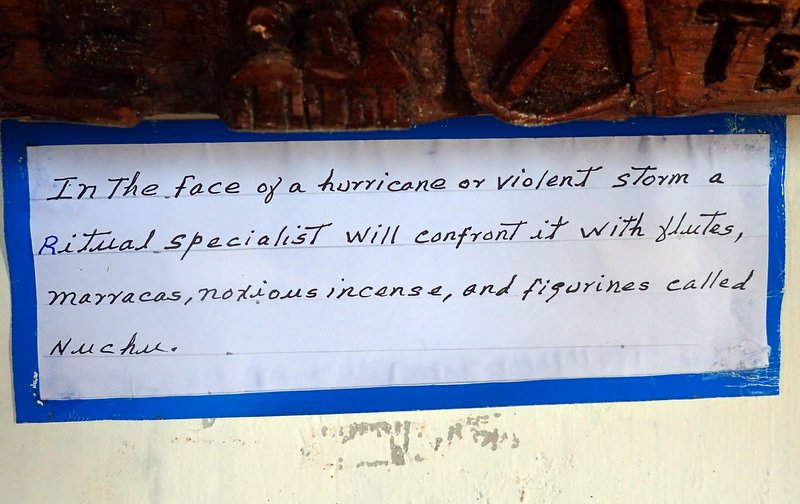 TE
In The face of a hurricane or violent storm a
Ritual specialist will confront it with flutes,
marracas, noxious incense, and figurines called
Nuchu.